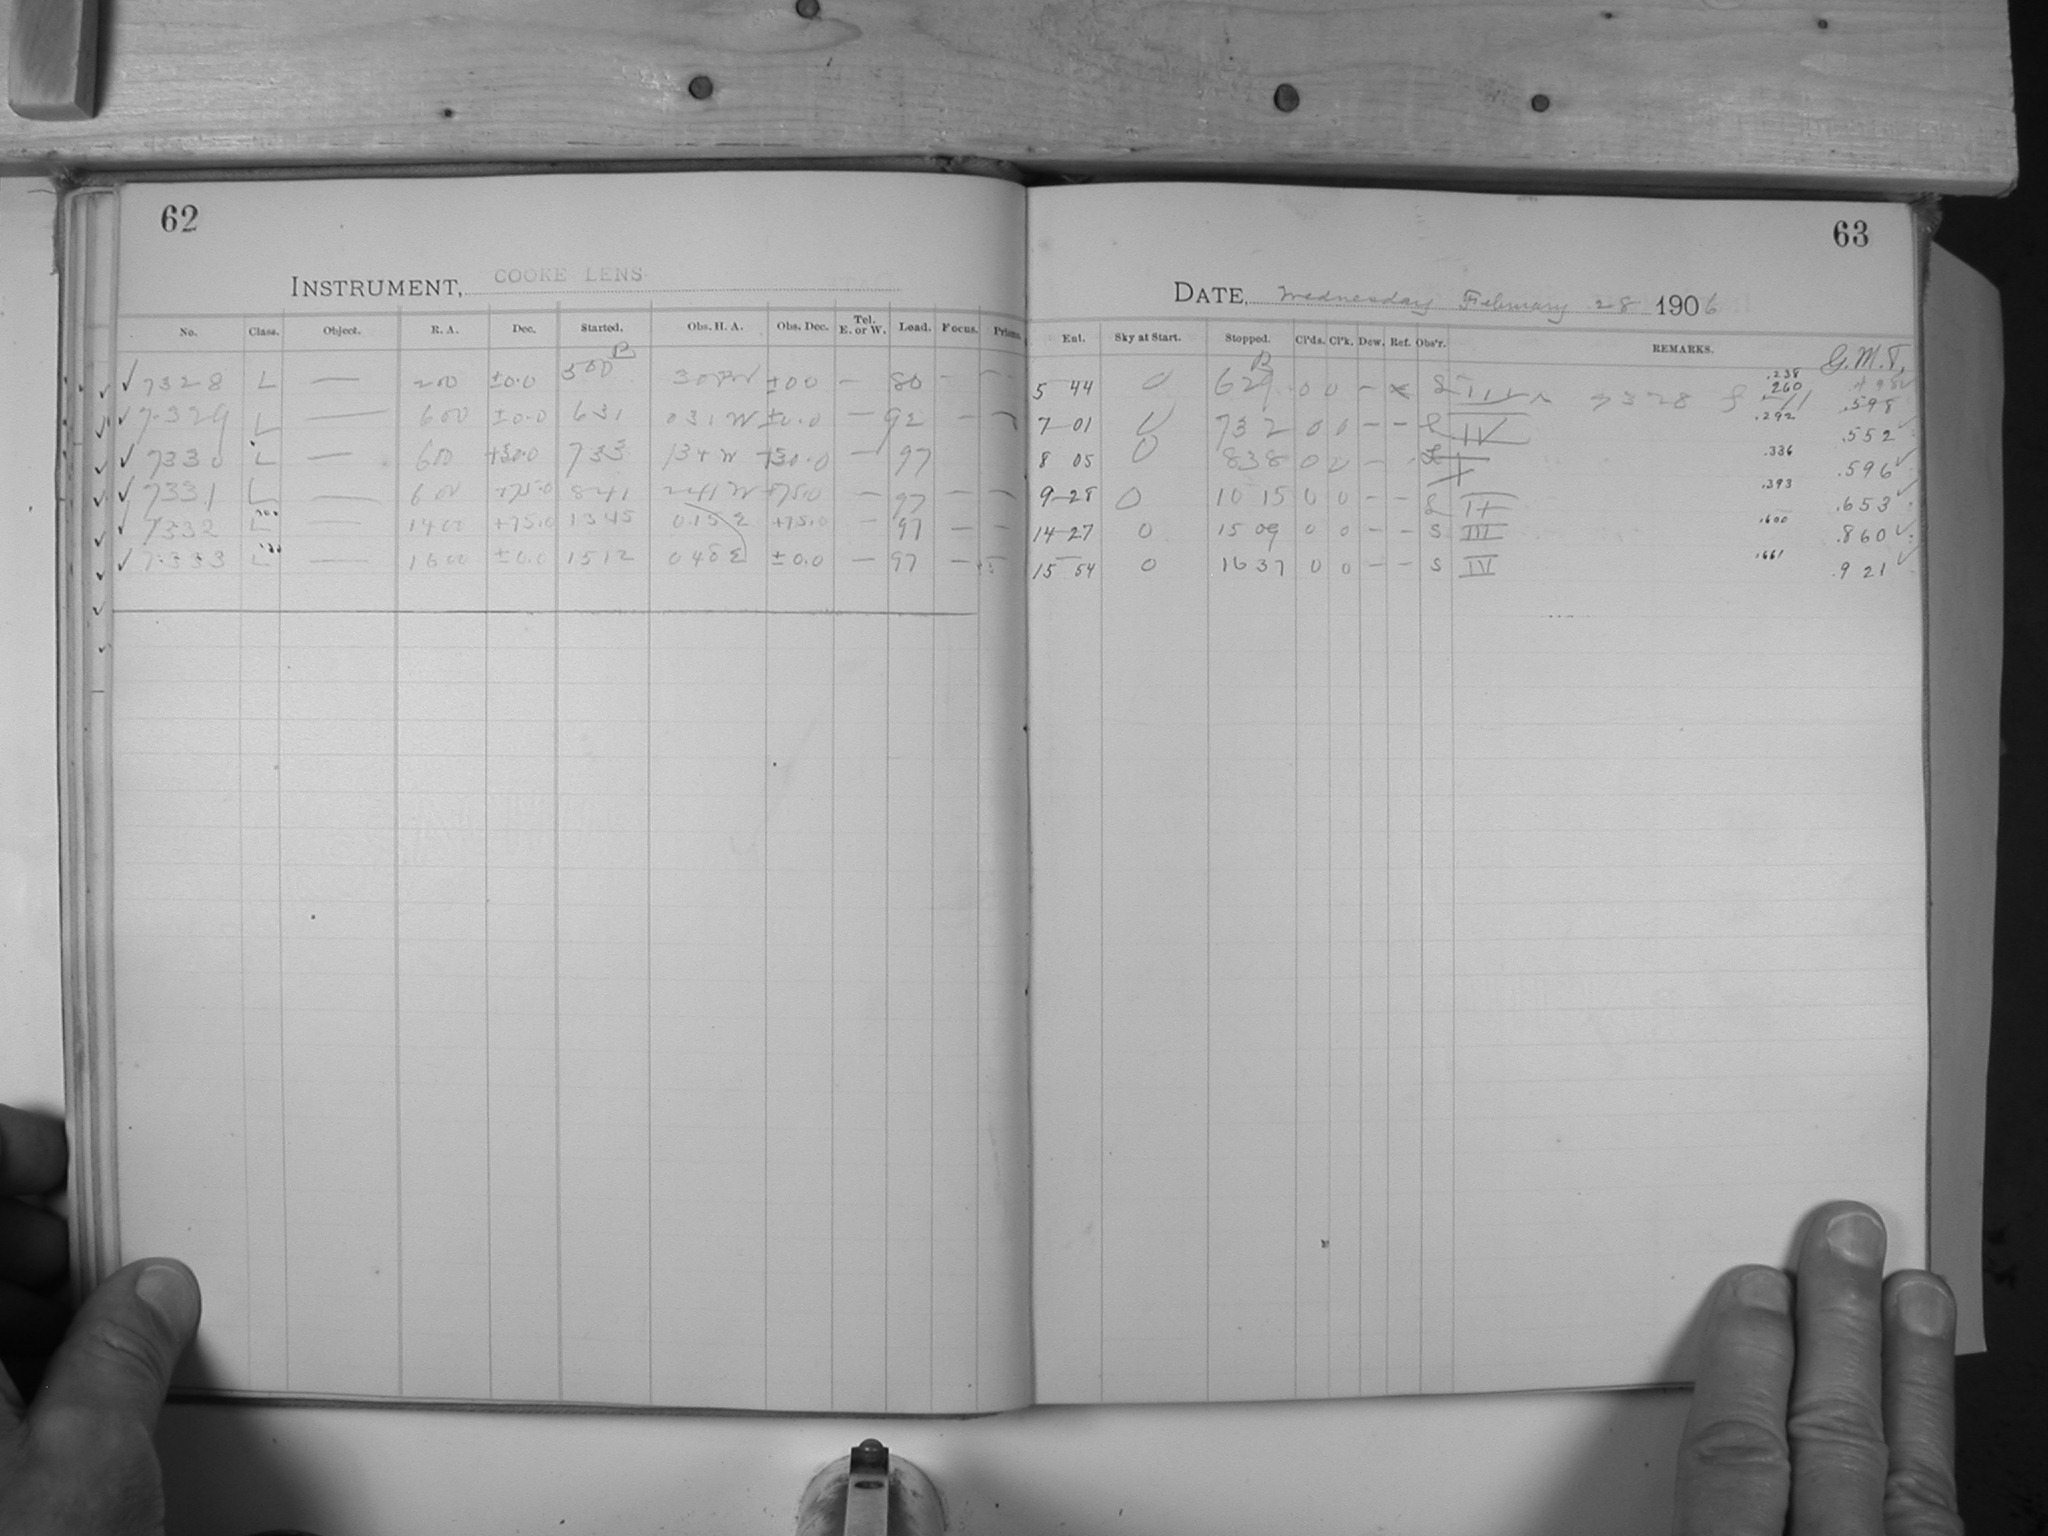 62
INSTRUMENT, COOKE LENS
No. Class. Object. R. A. Dec. Started. Obs. H. A. Obs. Dec. Tel. E. or W. Load. Focus. Prisms.
✓ 7328 L — 200 ±0.0 500 B ±00 — 80 —
✓ 7329 L — 600 ±0.0 631 031 W ±0.0 — 92 —
✓ 7330 L — 600 +30.0 733 134 W +30.0 — 97
✓ 7331 L — 600 +75.0 841 241 W +75.0 — 97 — —
✓ 7332 L — 1400 +75.0 1345 015 E +75.0 — 97 — —
✓ 7333 L — 1600 ±0.0 1512 048 E ±0.0 — 97 —
63
DATE, Wednesday February 28 1906
Ent. Sky at Start. Stopped. Cl'ds. Cl'k. Dew. Ref. Obs'r. REMARKS. G.M.T,
5 44 0 629 B 0 0 — 7328 .238 260 .598
7—01 0 732 0 0 — — IV .292 .552
8 05 0 838 0 0 — .336 .596 ✓
9—28 0 10 15 0 0 — — .393 .653 ✓
14—27 0 15 09 0 0 — — S III .600 .860 ✓
15—54 0 16 37 0 0 — — S IV .661 .921 ✓